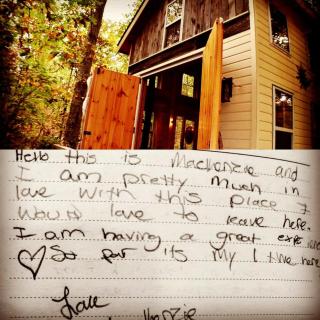 Hello this is Mackenzie and
I am pretty much in
love with this place I
Would love to leave here.
I am having a great
So far its my 1 time here
Love